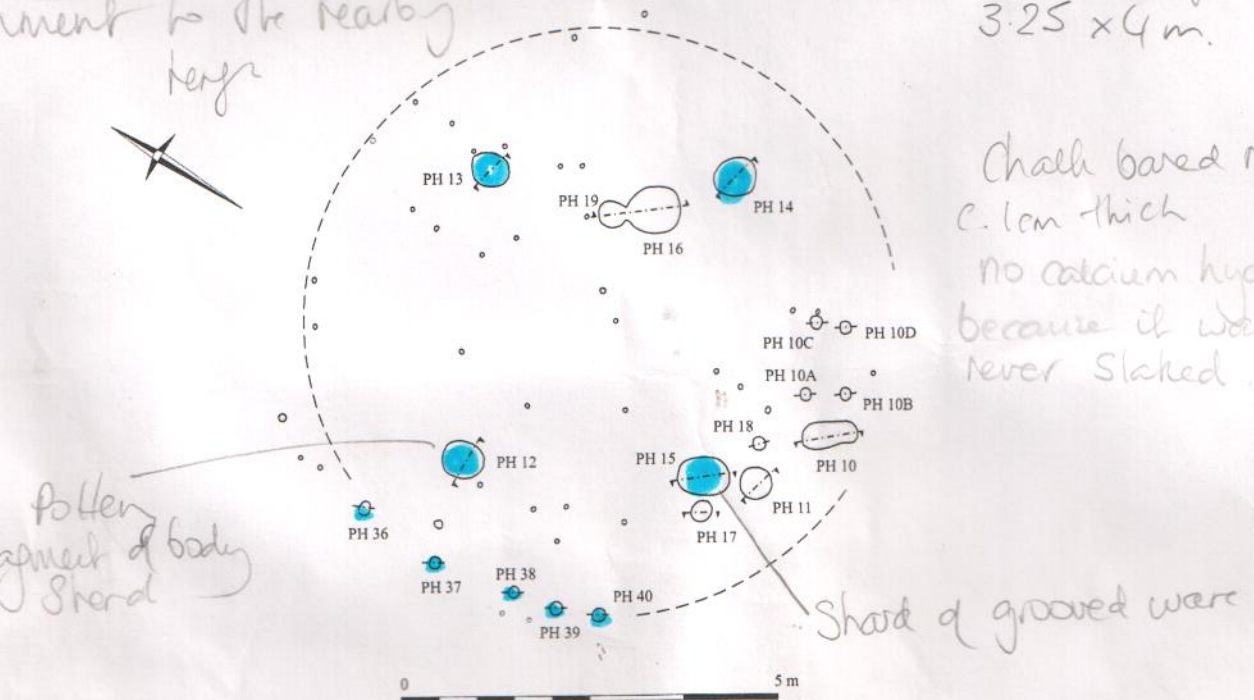 to the nearby
henge
3.25 x 4 m.
Chalk based
c. 1cm thick
no calcium
because it
never slaked
PH 13
PH 14
PH 19
PH 16
PH 10C
PH 10D
PH 10A
PH 10B
PH 18
PH 10
PH 12
PH 15
PH 11
PH 17
PH 36
PH 37
PH 38
PH 39
PH 40
Pottery
of body
Sherd
Sherd of grooved ware
0
5 m